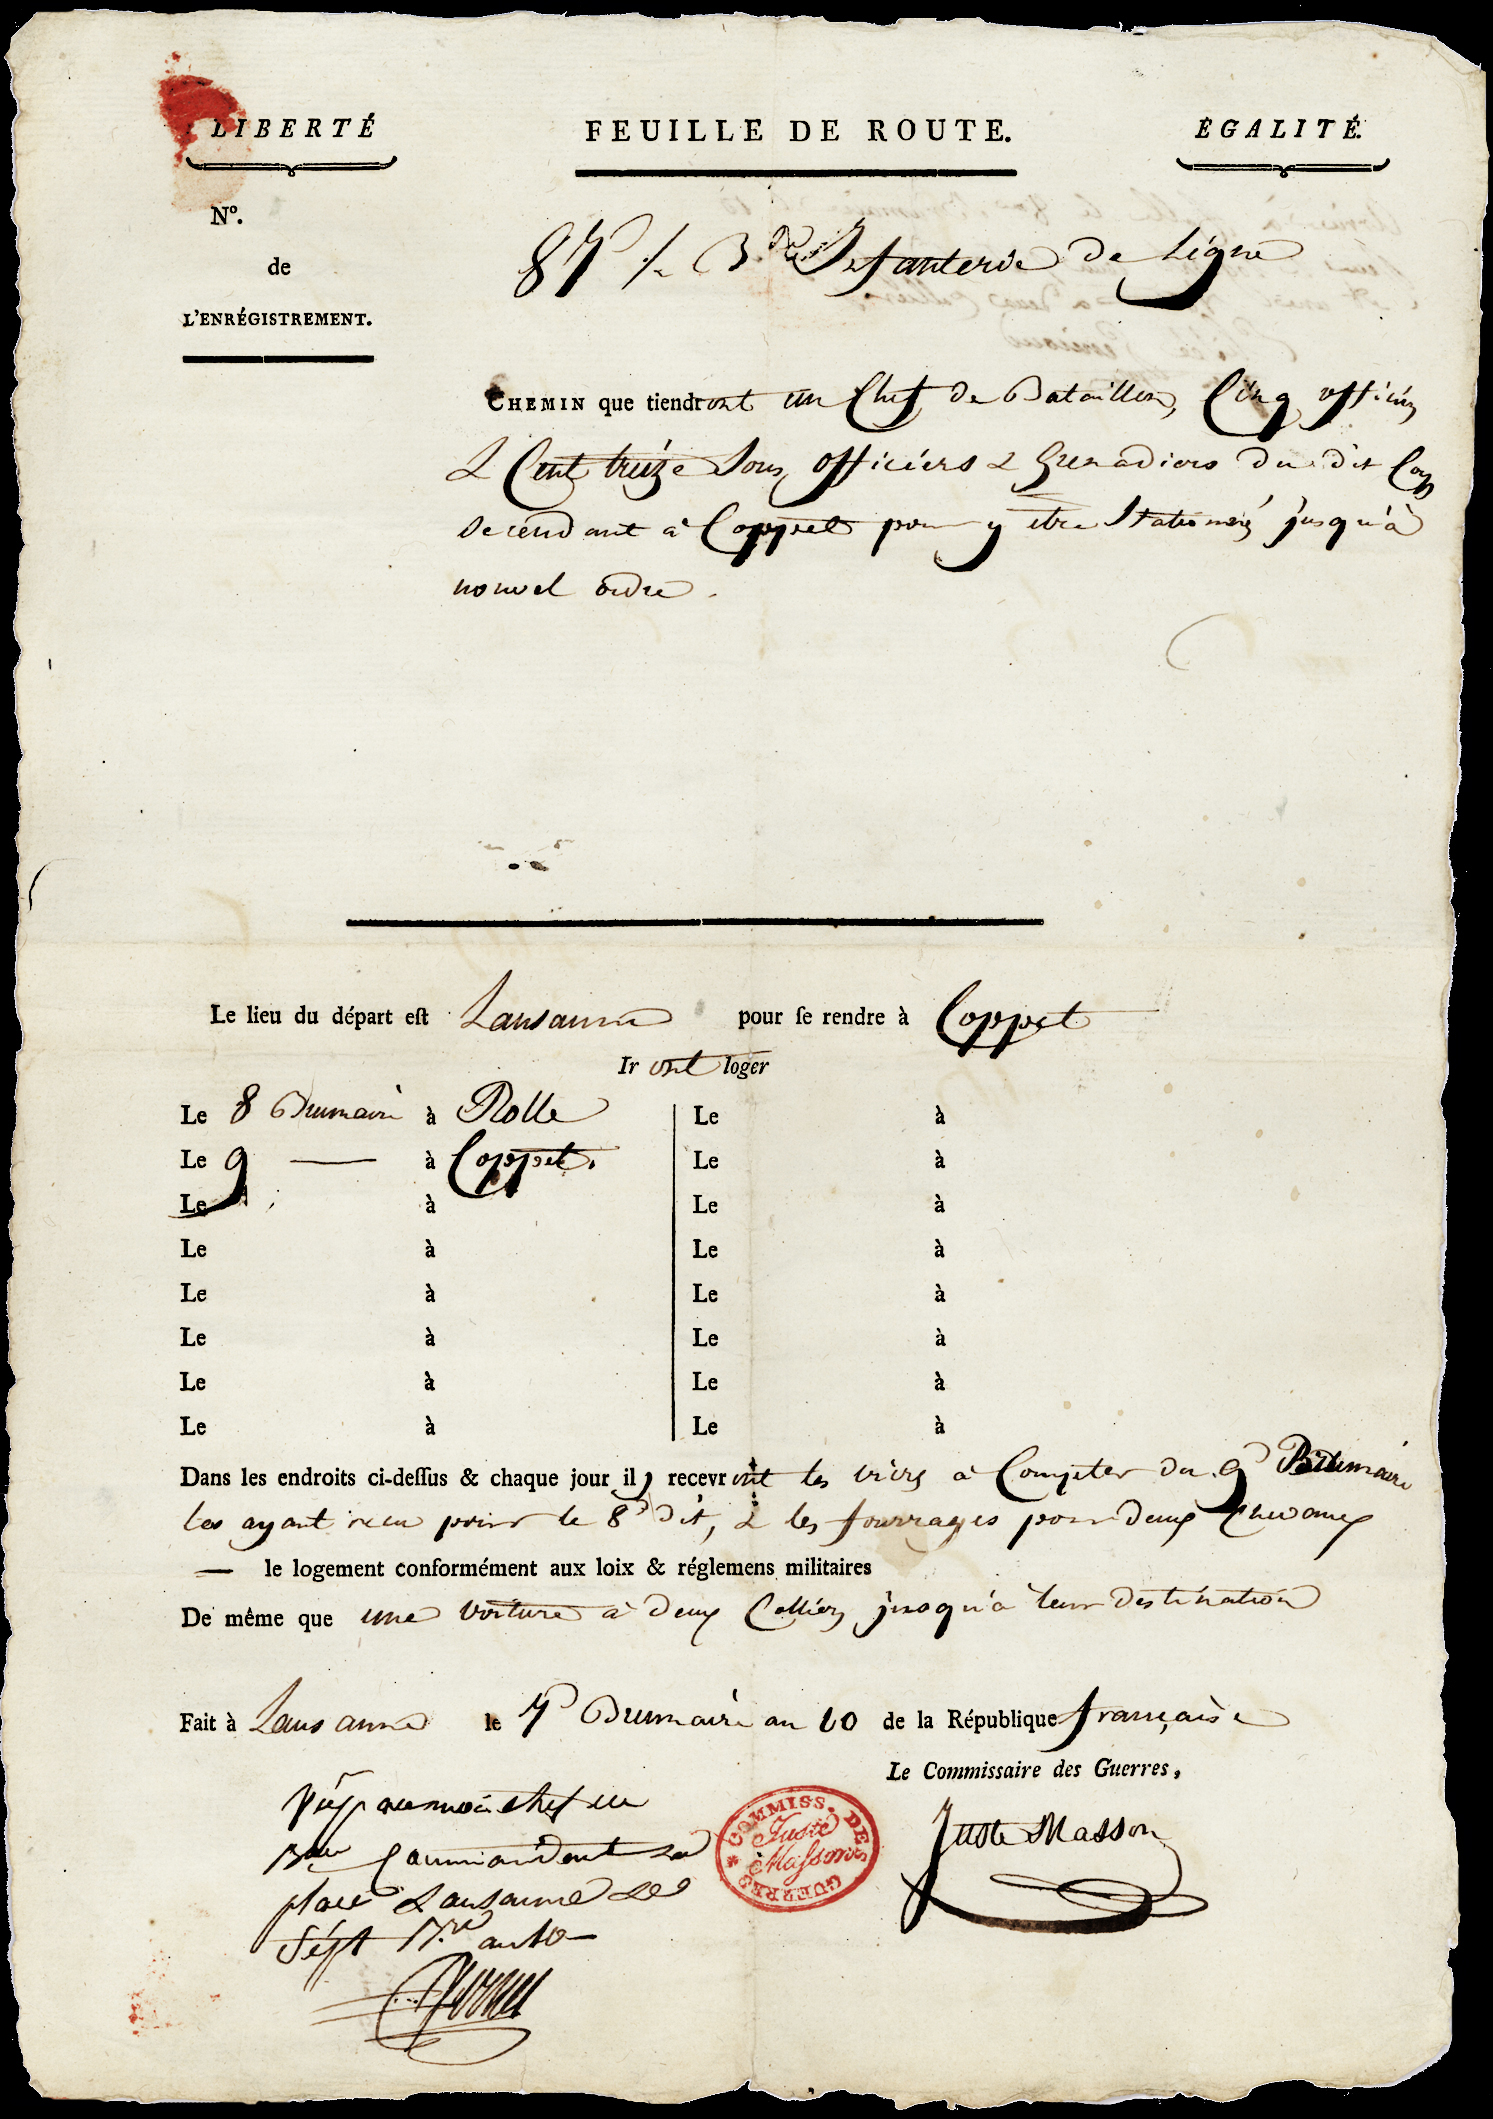 LIBERTÉ
FEUILLE DE ROUTE.
ÉGALITÉ.
N°.
de
L'ENRÉGISTREMENT.
87e 1/2 B.de d'Infanterie de Ligne
CHEMIN que tiendront un Chef de Bataillon, Cinq officiers
& Cent treize Sous officiers & Grenadiers du dit Corps
se rendant à Coppet pour y être Stationnés jusqu'à
nouvel ordre.
Le lieu du départ eſt Lausanne pour ſe rendre à Coppet
Iront loger
Le 8 Brumaire à Rolle Le à
Le 9 — à Coppet. Le à
Le à Le à
Le à Le à
Le à Le à
Le à Le à
Le à Le à
Le à Le à
Dans les endroits ci-deſſus & chaque jour ils recevront les vivres à Compter du 9e Brumaire
les ayant recu pour le 8e dit, & les fourrages pour deux Chevaux
— le logement conformément aux loix & réglemens militaires
De même que une voiture à deux Colliers jusqu'à leur destination
Fait à Lausanne le 7e Brumaire an 10 de la République française
Le Commissaire des Guerres,
Juste Masson
COMMISS. DES GUERRES
Juste Maſson
Vu par moi chef de
B.on Commandant la
place Lausanne le
Sept B.re an 10